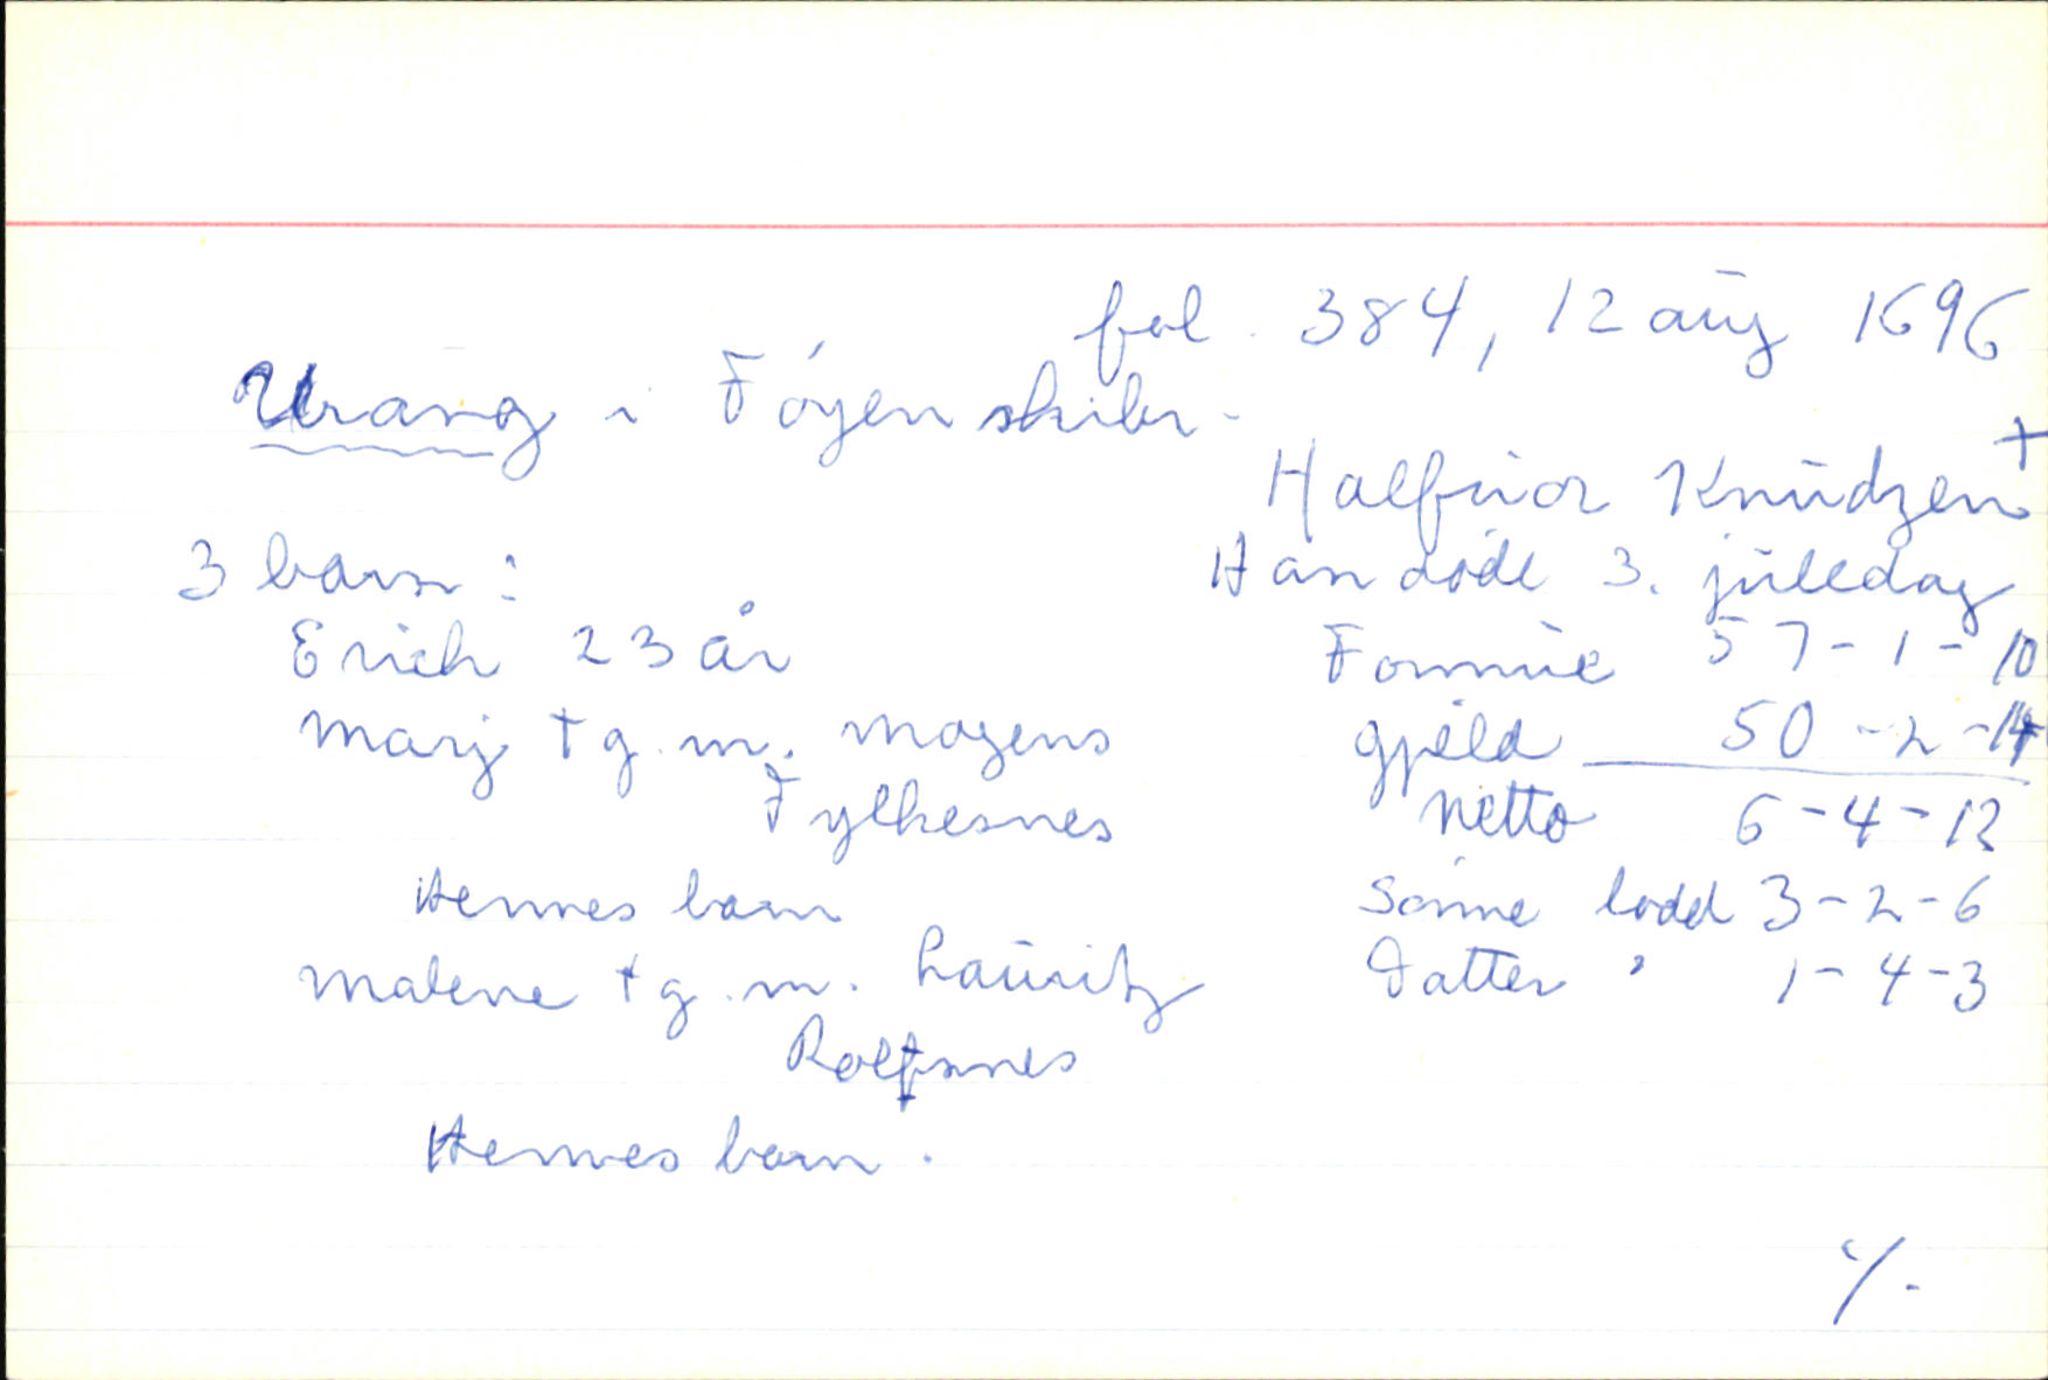 fol. 384, 12 aug 1696
Urang i Føyen skibr.
Halfuor Knudzen +
3 barn :
Han døde 3. juledag
Erich 23 år
Formue 57-1-10
Marj + g. m. Mogens
Gjeld 50-2-14
Fylkesnes
Netto 6-4-12
Hennes barn
Sønne lodd 3-2-6
Malene + g. m. Lauritz
Datter " 1-4-3
Rolfsnes
Hennes barn.
·/.